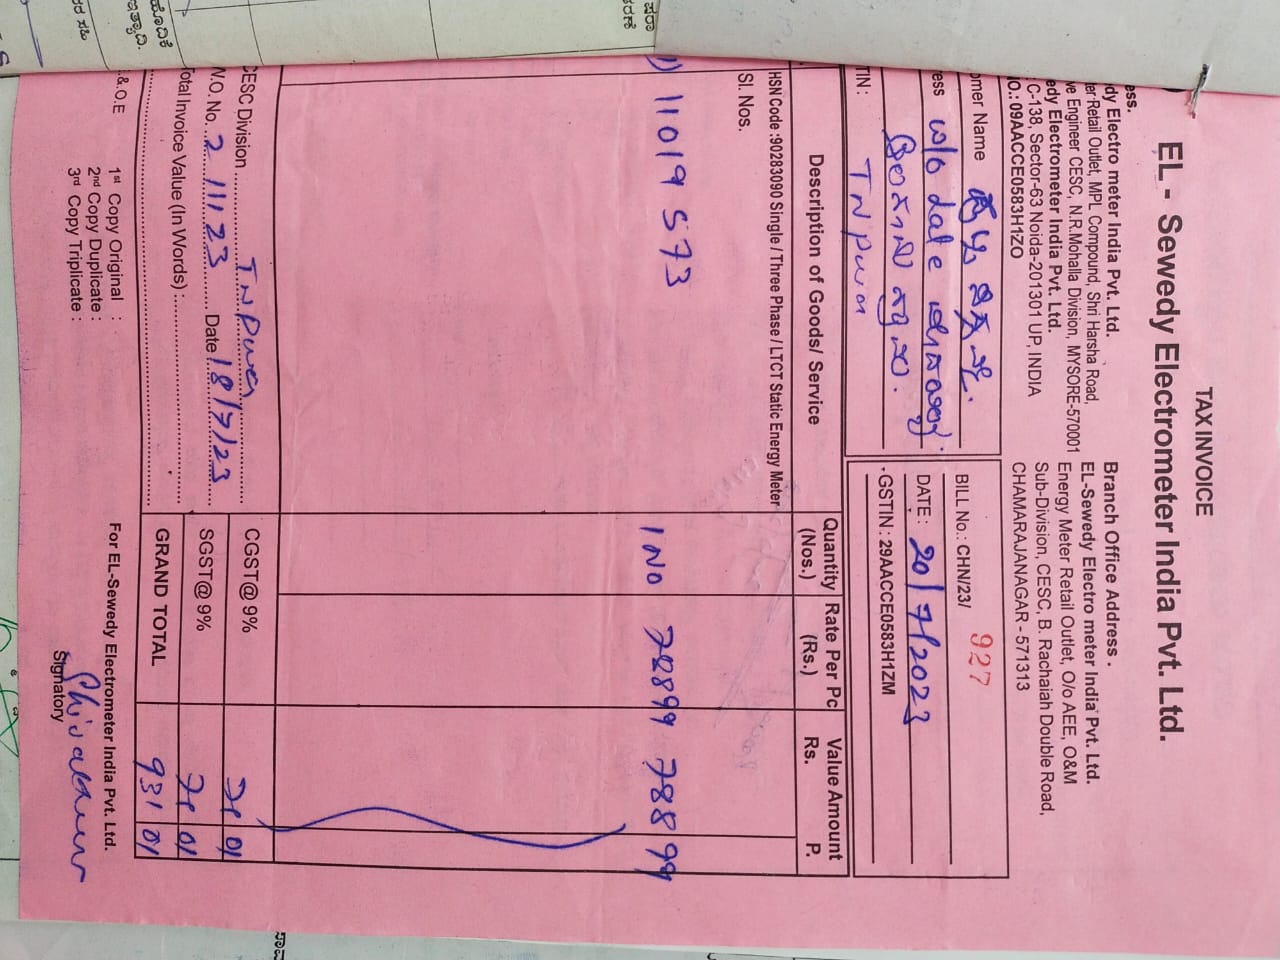 TAX INVOICE
EL - Sewedy Electrometer India Pvt. Ltd.
ess.
dy Electro meter India Pvt. Ltd.
er Retail Outlet, MPL Compound, Shri Harsha Road,
ve Engineer CESC, N.R.Mohalla Division, MYSORE-570001
edy Electrometer India Pvt. Ltd.
C-138, Sector-63 Noida-201301 UP, INDIA
O.: 09AACCE0583H1ZO
Branch Office Address .
EL-Sewedy Electro meter India Pvt. Ltd.
Energy Meter Retail Outlet, O/o AEE, O&M
Sub-Division, CESC, B. Rachaiah Double Road,
CHAMARAJANAGAR - 571313
omer Name
ess w/o late
TN Pura
TIN :
BILL No.: CHN/23/ 927
DATE : 20/7/2023
GSTIN : 29AACCE0583H1ZM
Description of Goods/ Service
Quantity (Nos.)
Rate Per Pc (Rs.)
Value Amount
Rs. P.
HSN Code :90283090 Single / Three Phase / LTCT Static Energy Meter
Sl. Nos.
1) 11019573 1 NO 788 99 788 99
CESC Division TN Pura
N.O. No. 2 11123 Date 18/7/23
Total Invoice Value (In Words) :
CGST@ 9% 71 01
SGST@ 9% 71 01
GRAND TOTAL 931 01
.&.O.E
1st Copy Original :
2nd Copy Duplicate :
3rd Copy Triplicate :
For EL-Sewedy Electrometer India Pvt. Ltd.
Signatory